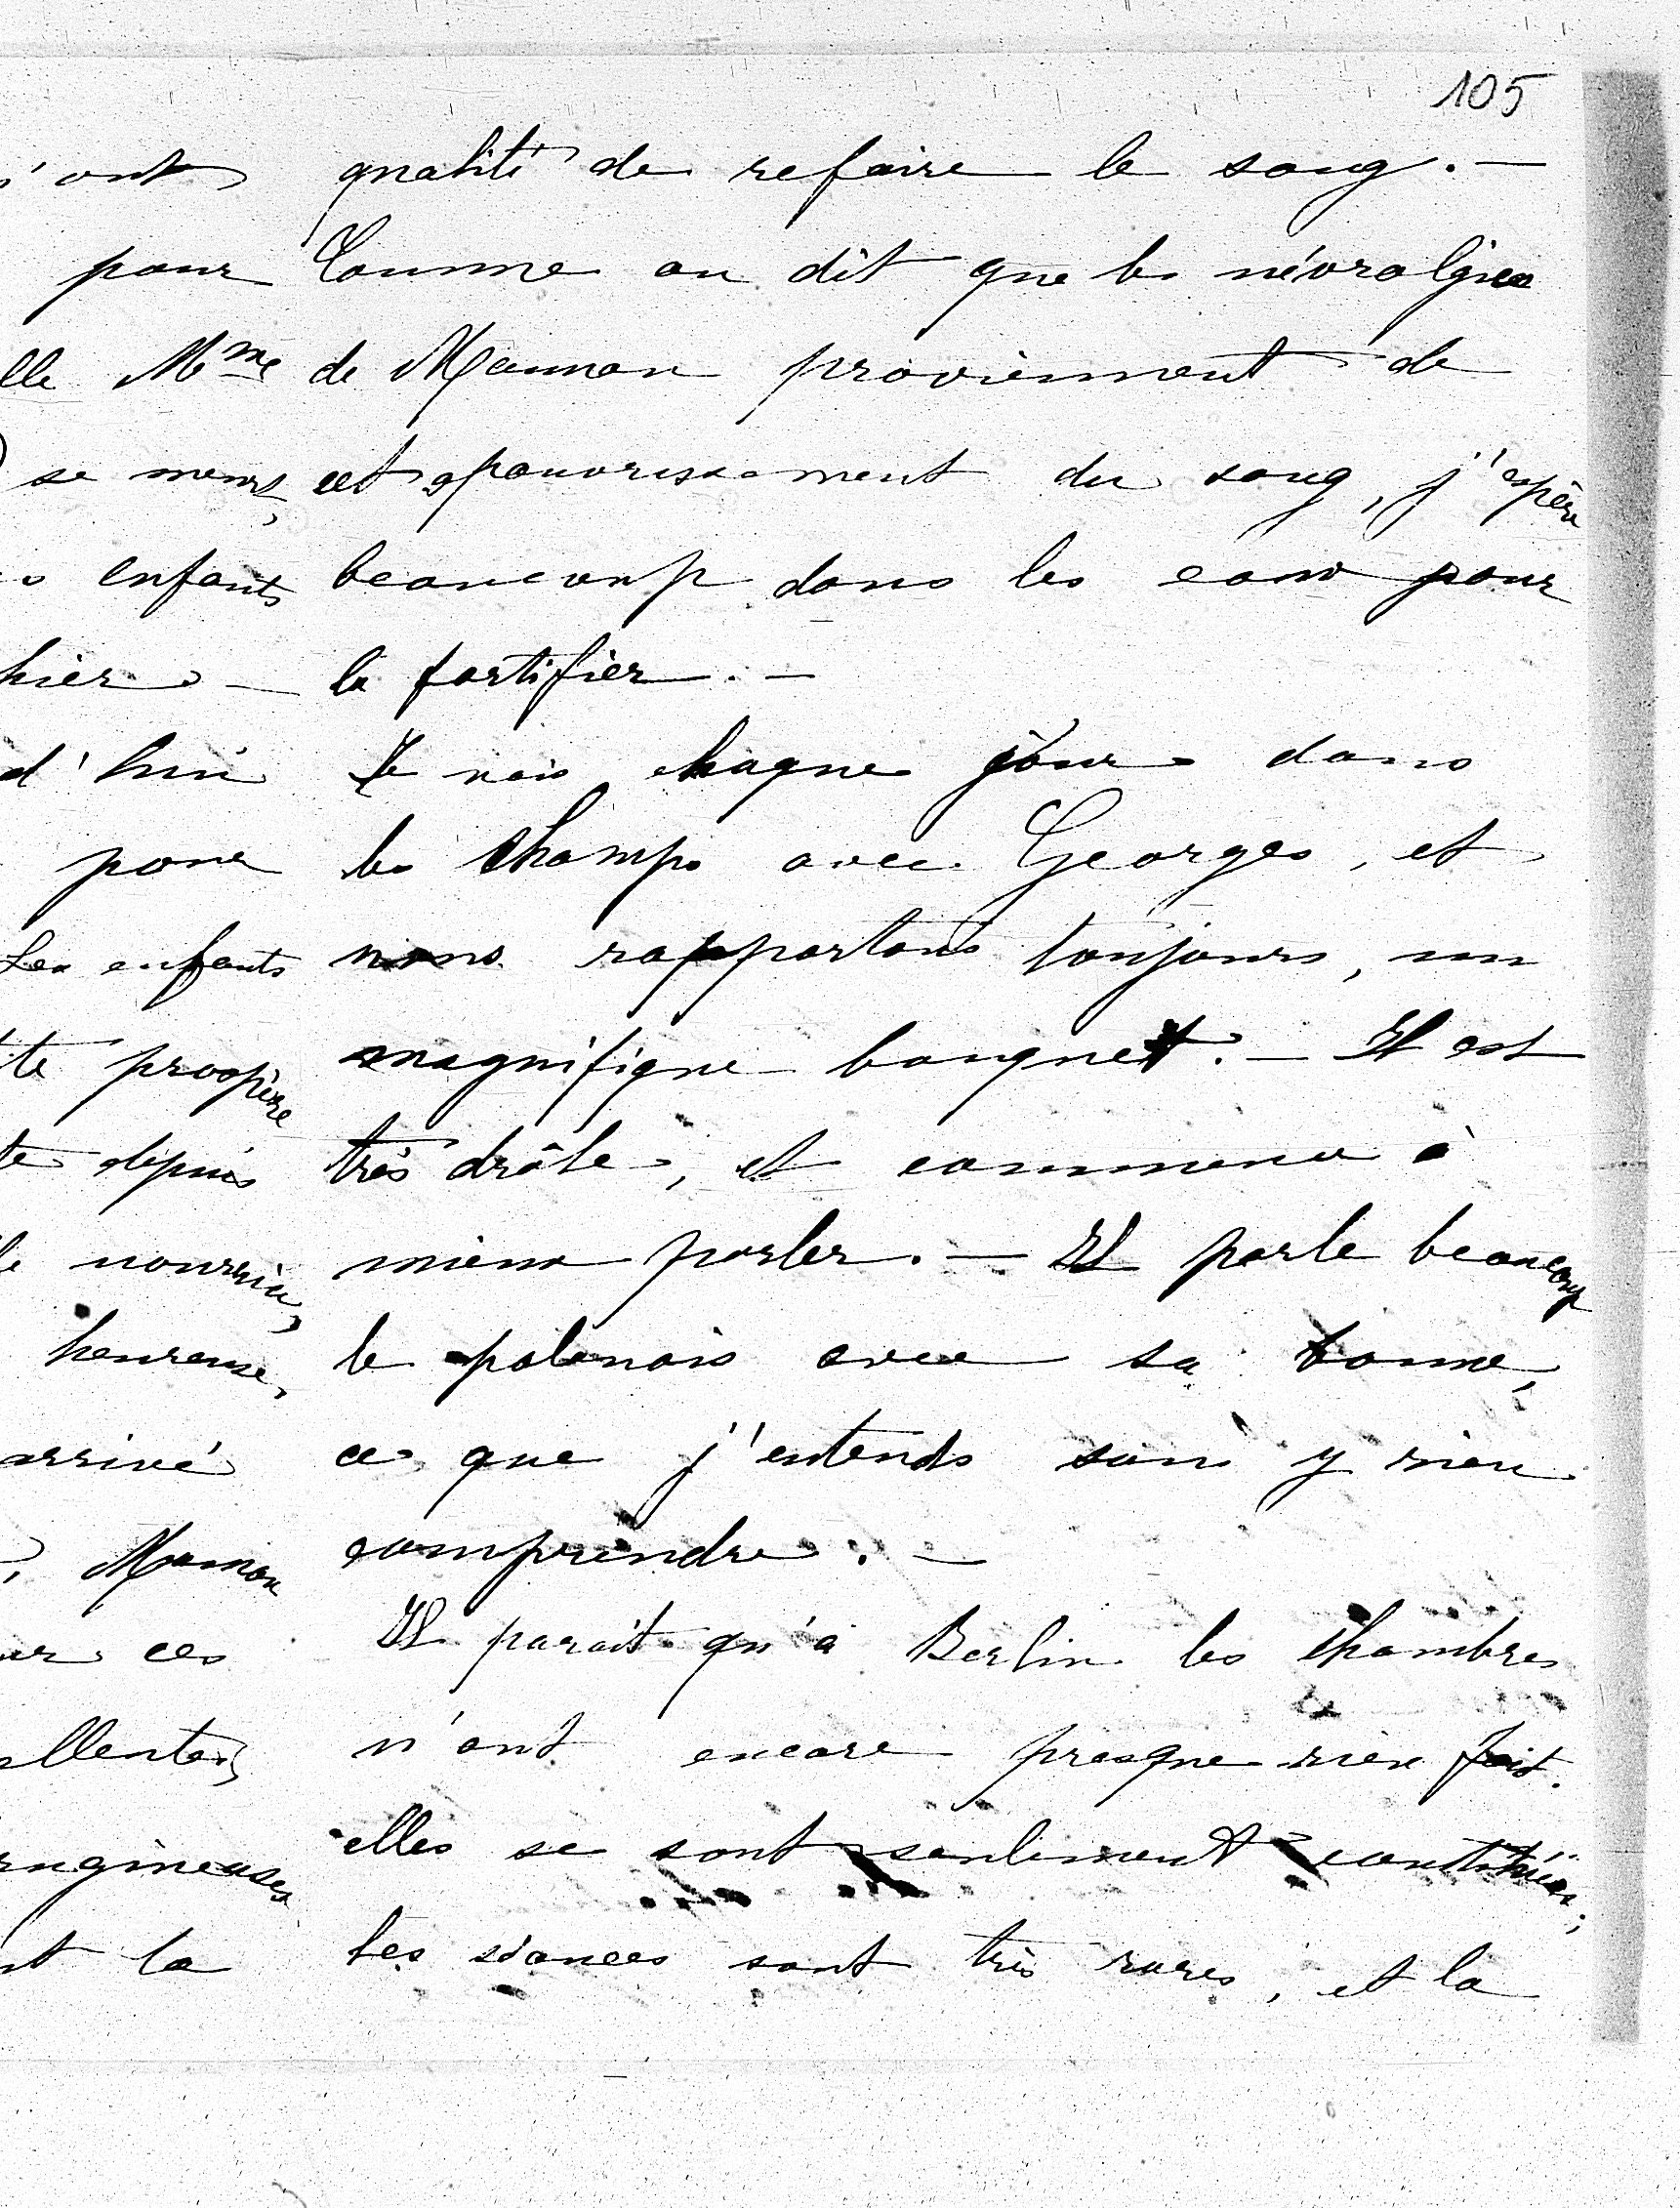 105
n'ont
pour
elle Mme
se meurt,
enfants
hier. —
d'hui
pour
Les enfants
prospère
depuis
nourrice,
heureuse,
arrivé
Maman
ces
ngineuses
la
qualité de refaire le sang. —
Comme on dit que les névralgies
de Maman proviennent de
cet apauvrissement du sang, j'espère
beaucoup dans les eaux pour
la fortifier. —
Je vais chaque jour dans
les champs avec Georges, et
nous rapportons toujours, un
magnifique bouquet. — Il est
très drôle, et commence à
mieux parler. — Il parle beaucoup
le polonais avec sa bonne,
ce que j'entends sans y rien
comprendre. —
Il parait qu'à Berlin les chambres
n'ont encore presque rien fait.
elles se sont seulement constituées;
les séances sont très rares, et la